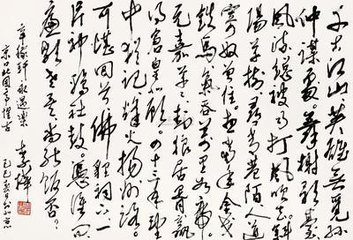 千古江山英雄无覓孫
仲謀處舞榭歌臺
風流總被雨打風吹去斜
陽草樹尋常巷陌人道
寄奴曾住想當年金戈
鐵馬氣吞萬里如虎
元嘉草草封狼居胥贏
得倉皇北顧四十三年望
中猶記烽火揚州路
可堪回首佛狸祠下一
片神鴉社鼓憑誰問
廉頗老矣尚能飯否
辛稼軒永遇樂
京口北固亭懷古